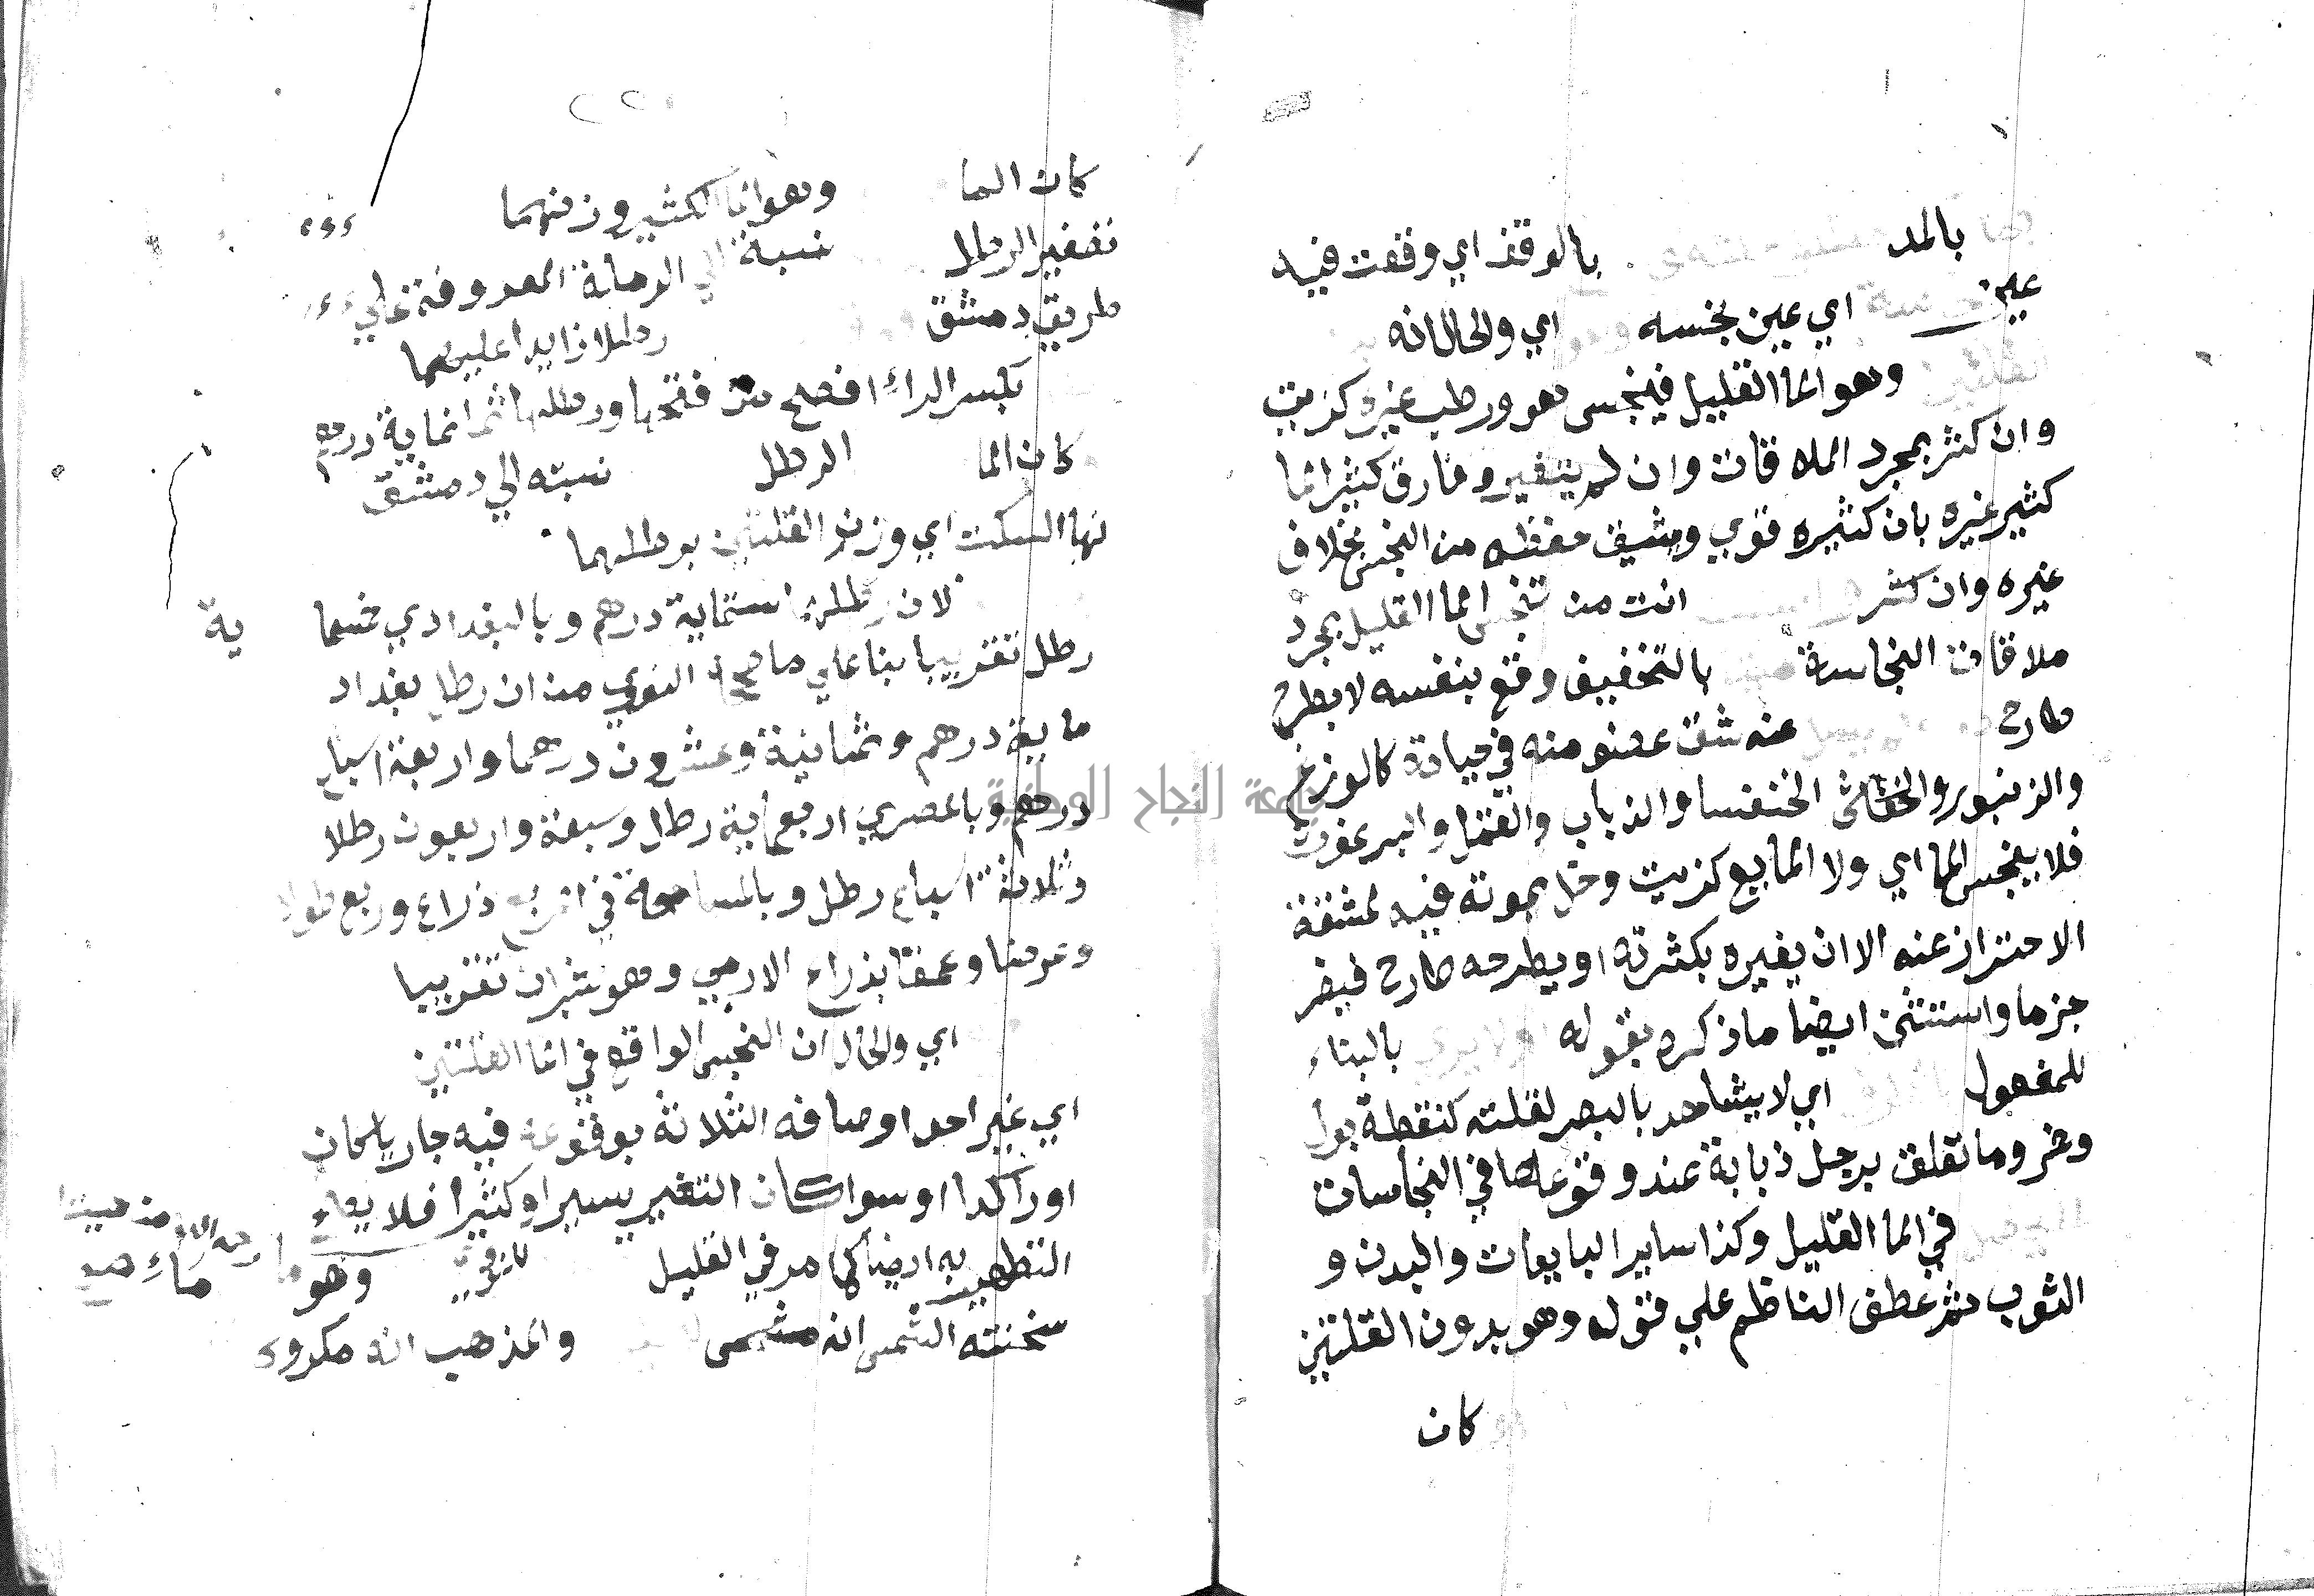 بالمد بالوقف اي وقفت فيه
عين اي عين نجسه اي والحال انه
وهو الما القليل فينجس هو ورطب غيره كزيت
وان كثر بمجرد الملاقات وان لم يتغير وفارق كثير الما
كثير غيره بان كثيره قوي ويشق حفظه من النجس بخلاف
غيره وان كثر انت من تنجس الما القليل بمجرد
ملاقات النجاسة بالتخفيف وقع بنفسه لا بطرح
طارح عند شق عضو منه في حياته كالوزغ
والزنبور والخنفسا والذباب والقمل والبرغوث
فلا ينجس الما اي ولا المايع كزيت وخل بموته فيه لمشقة
الاحتراز عنه الا ان يغيره بكثرته او يطرحه طارح فيضر
جزما واستثنى ايضا ما ذكره بقوله بالبناء
للمفعول اي لا يشاهد بالبصر لقلته كنقطة بول
وخمر وما تعلق برجل ذبابة عند وقوعها في النجاسات
في الما القليل وكذا ساير المايعات والبدن و
الثوب ثم عطف الناظم علي قوله وهو بدون القلتين
كان
٢٢
كان الما وهو الما الكثير وزنهما
تفغير الرطل نسبة الي الرملة المعروفة علي
طريق دمشق رطلا زايدا عليهما
بكسر الراء افصح من فتحها ورطلها ثمانماية درهم
كان الما الرطل نسبته الي دمشق
لها السكت اي وزن القلتين برطلهما
لان رطلها ستماية درهم وبالبغدادي خمسماية
رطل تقريبا بنا علي ما صححه النووي من ان رطل بغداد
ماية درهم وثمانية وعشرون درهما واربعة اسباع
درهم وبالمصري اربعماية رطل وسبعة واربعون رطلا
وثلاثة اسباع رطل وبالمساحة في المربع ذراع وربع طولا
وعرضا وعمقا بذراع الادمي وهو شبران تقريبا
اي والحال ان النجس الواقع في الما القلتين
اي غير احد اوصافه الثلاثة بوقوعه فيه جاريا كان
او راكدا او سوا كان التغير يسيرا او كثيرا فلا
التطهير به ايضا كما مر في القليل وهو ما
سخنته الشمس انه مشمس والمذهب انه مكروه
جامعة النجاح الوطنية